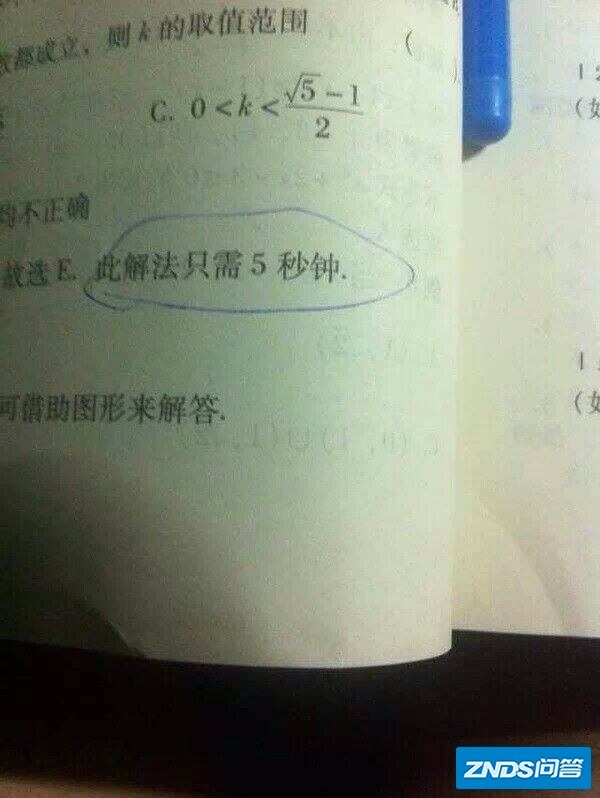 数都成立，则k的取值范围 (
).
C. 0<k<(√5−1)/2
均不正确
故选 E. 此解法只需 5 秒钟.
可借助图形来解答.
1 2
(如
1
(如
ZNDS问答